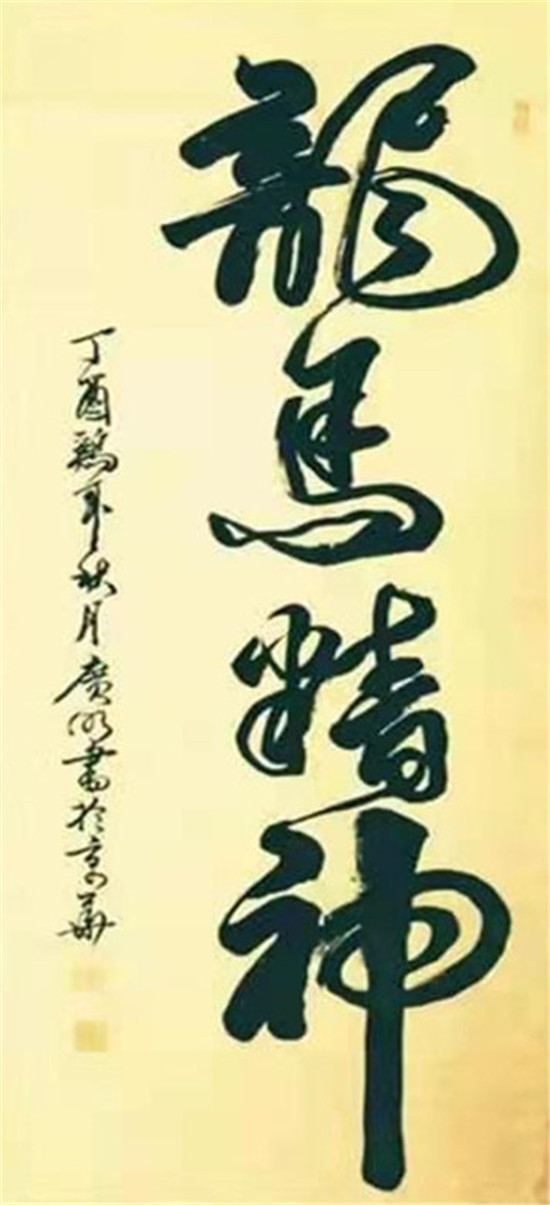 龍馬精神
丁酉鷄年秋月廣明書於京華